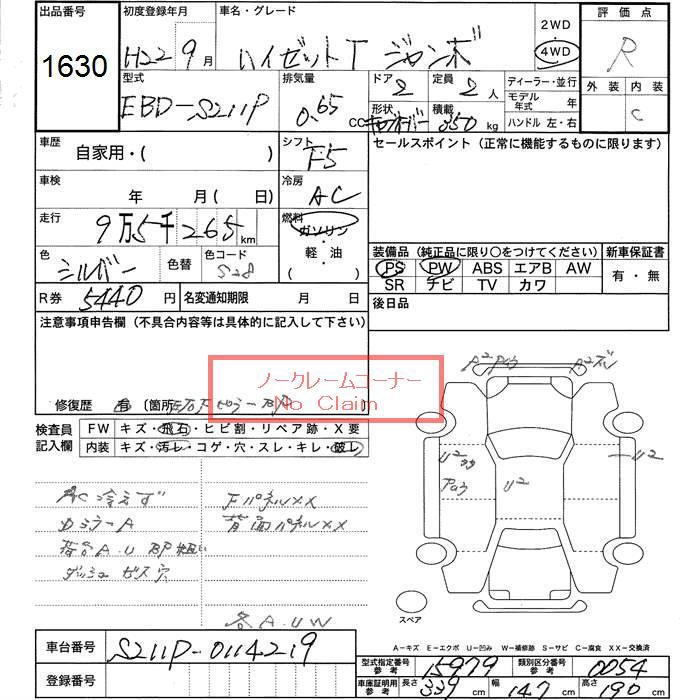 出品番号
1630
初度登録年月
H22 9月
車名・グレード
ハイゼットT ジャンボ
2WD
4WD
評価点
R
外装 内装
C
型式
EBD-S211P
排気量
0.65
CC
ドア
2
定員
2人
形状
積載
350kg
ディーラー・並行
モデル年式 年
ハンドル 左・右
車歴
自家用・( )
シフト
F5
セールスポイント (正常に機能するものに限ります)
車検
年 月 ( 日)
冷房
AC
走行
9万5千265km
燃料
ガソリン
・
軽・油
( )
色
シルバー
色替
色コード
S28
装備品 (純正品に限り○をつけてください)
新車保証書
PS PW ABS エアB AW
SR ナビ TV カワ
有・無
R券
5440円
名変通知期限 月 日
後日品
注意事項申告欄 (不具合内容等は具体的に記入して下さい)
ノークレームコーナー
No Claim
修復歴 有 〔箇所
検査員記入欄
FW キズ・飛石・ヒビ割・リペア跡・X要
内装 キズ・汚レ・コゲ・穴・スレ・キレ・破レ
AC冷えず
FパネルXX
ロミラーA
背面パネルXX
荷台A.U BP粗い
ダッシュビス穴
各A.U W
A2
A2ズレ
U2
U2
U2
スペア
A-キズ E-エクボ U-凹み W-補修跡 S-サビ C-腐食 XX-交換済
車台番号
S211P-0114219
登録番号
型式指定番号 参考
15979
類別区分番号 参考
0054
車庫証明用 参考
長さ 339cm
幅 147cm
高さ 190cm